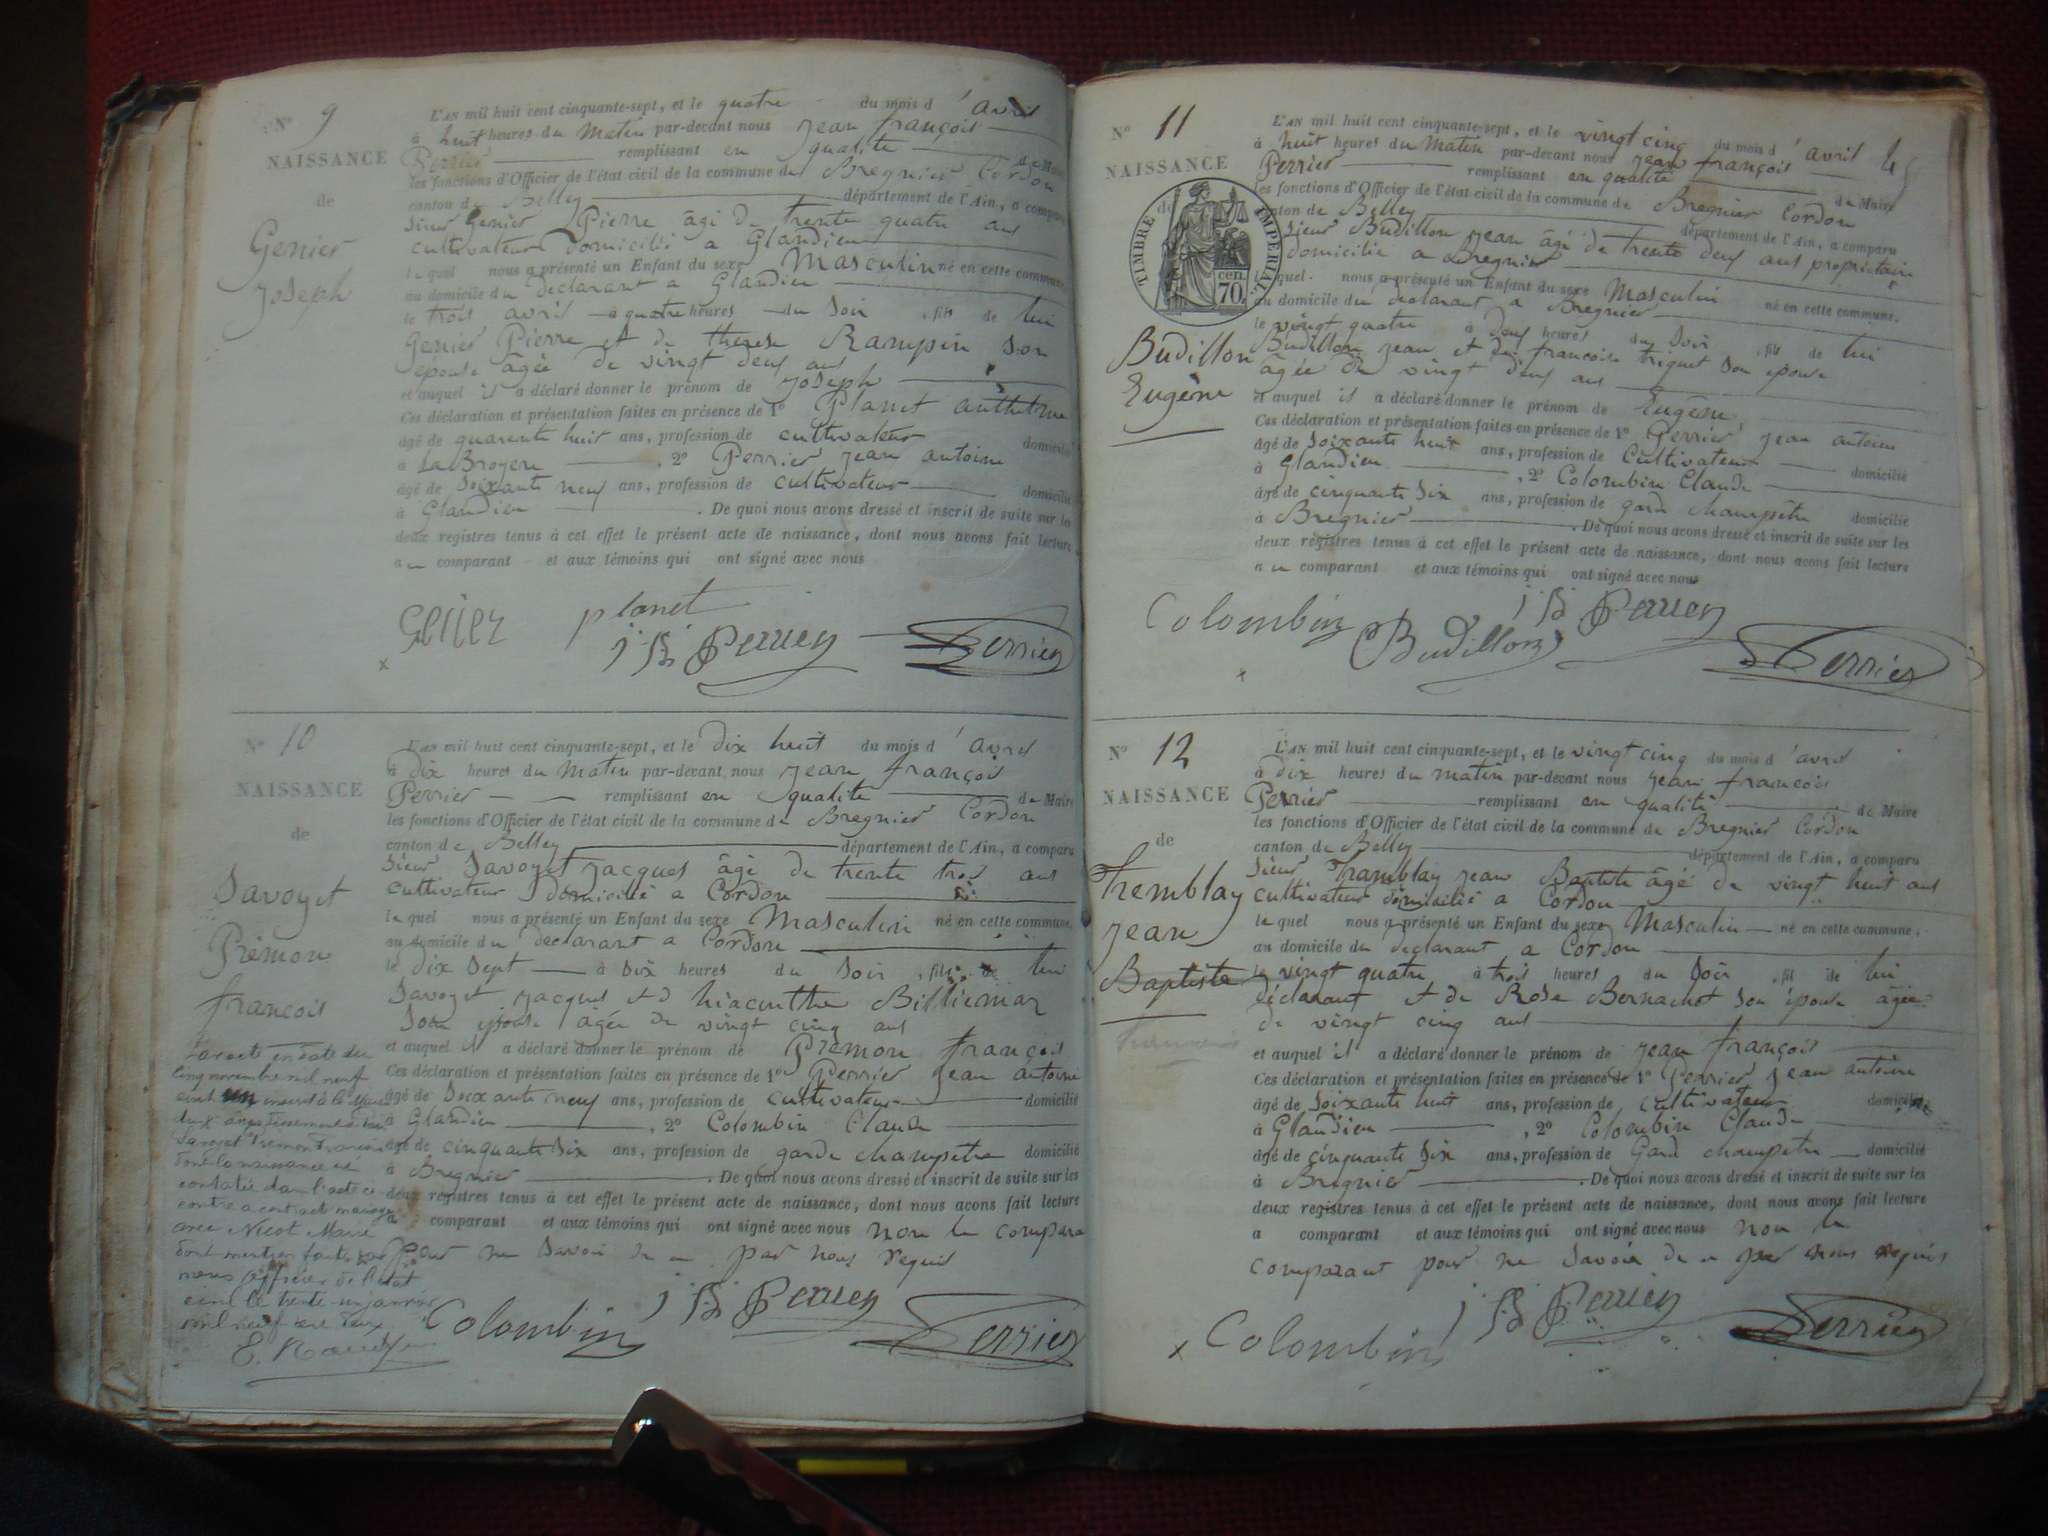 N° 9
NAISSANCE
de
Genier
Joseph
L'AN mil huit cent cinquante-sept, et le quatre du mois d'avril
à huit heures du matin par-devant nous jean françois
Perrier remplissant en qualité de Maire
les fonctions d'Officier de l'état civil de la commune de Bregnier Cordon
canton de Belley département de l'Ain, a comparu
sieur Genier Pierre âgé de trente quatre ans
cultivateur domicilié a Glandieu
lequel nous a présenté un Enfant du sexe Masculin né en cette commune
au domicile du declarant a Glandieu
le trois avril à quatre heures du soir, fils de lui
Genier Pierre et de therese Rampin son
epouse âgée de vingt deux ans
et auquel il a déclaré donner le prénom de joseph
Ces déclaration et présentation faites en présence de 1° Planet anthelme
âgé de quarente huit ans, profession de cultivateur domicilié
à La Broyere, 2° Perrier jean antoine
âgé de soixante neuf ans, profession de cultivateur domicilié
à Glandieu. De quoi nous avons dressé et inscrit de suite sur les
deux registres tenus à cet effet le présent acte de naissance, dont nous avons fait lecture
au comparant et aux témoins qui ont signé avec nous
Genier planet
Perrier Perrier
N° 10
NAISSANCE
de
Savoyet
Prémon
françois
L'AN mil huit cent cinquante-sept, et le dix huit du mois d'avril
à dix heures du matin par-devant nous jean françois
Perrier remplissant en qualité de Maire
les fonctions d'Officier de l'état civil de la commune de Bregnier Cordon
canton de Belley département de l'Ain, a comparu
sieur Savoyet jacques âgé de trente trois ans
cultivateur domicilié a Cordon
lequel nous a présenté un Enfant du sexe Masculin né en cette commune,
au domicile du declarant a Cordon
le dix sept à dix heures du soir, fils de lui
Savoyet jacques et d hiacinthe Billiemaz
son épouse âgée de vingt cinq ans
et auquel il a déclaré donner le prénom de Prémon françois
Ces déclaration et présentation faites en présence de 1° Perrier jean antoine
âgé de soixante neuf ans, profession de cultivateur domicilié
à Glandieu, 2° Colombin Claude
âgé de cinquante six ans, profession de garde champetre domicilié
à Bregnier. De quoi nous avons dressé et inscrit de suite sur les
deux registres tenus à cet effet le présent acte de naissance, dont nous avons fait lecture
a comparant et aux témoins qui ont signé avec nous non le compara
pour ne savoir de ce par nous requis
Par acte en date du
cinq novembre mil neuf
cent un
Savoyet Prémon francois
dont la naissance est
contatée dans l'acte ci
contre a contracté mariage
avec Nicot Marie
dont mention faite par
nous officier de l'état
civil le trente un janvier
mil neuf cent deux
Colombin Perrier Perrier
N° 11
NAISSANCE
de
TIMBRE IMPÉRIAL
70 cen.
Budillon
Eugène
L'AN mil huit cent cinquante-sept, et le vingt cinq du mois d'avril 45
à huit heures du matin par-devant nous jean françois
Perrier remplissant en qualité de Maire
les fonctions d'Officier de l'état civil de la commune de Bregnier Cordon
canton de Belley département de l'Ain, a comparu
sieur Budillon jean âgé de trente deux ans propriétaire
domicilié a Bregnier
lequel nous a présenté un Enfant du sexe Masculin né en cette commune,
au domicile du declarant a Bregnier
le vingt quatre à deux heures du soir, fils de lui
Budillon jean et de francoise triquet son épouse
âgée de vingt deux ans
et auquel il a déclaré donner le prénom de Eugène
Ces déclaration et présentation faites en présence de 1° Perrier jean antoine
âgé de soixante huit ans, profession de cultivateur domicilié
à Glandieu, 2° Colombin Claude
âgé de cinquante six ans, profession de gard champêtre domicilié
à Bregnier. De quoi nous avons dressé et inscrit de suite sur les
deux registres tenus à cet effet le présent acte de naissance, dont nous avons fait lecture
au comparant et aux témoins qui ont signé avec nous
Colombin Perrier
Budillon Perrier
N° 12
NAISSANCE
de
Tremblay
jean
Baptiste
L'AN mil huit cent cinquante-sept, et le vingt cinq du mois d'avril
à dix heures du matin par-devant nous jean francois
Perrier remplissant en qualité de Maire
les fonctions d'Officier de l'état civil de la commune de Bregnier Cordon
canton de Belley département de l'Ain, a comparu
sieur Tramblay jean Baptiste âgé de vingt huit ans
cultivateur domicilié a Cordon
lequel nous a présenté un Enfant du sexe Masculin né en cette commune,
au domicile du declarant a Cordon
le vingt quatre à trois heures du soir, fil de lui
déclarant et de Rose Bernachot son épouse âgée
de vingt cinq ans
et auquel il a déclaré donner le prénom de jean françois
Ces déclaration et présentation faites en présence de 1° Perrier jean antoine
âgé de soixante huit ans, profession de cultivateur domicilié
à Glandieu, 2° Colombin Claude
âgé de cinquante six ans, profession de Gard champetre domicilié
à Bregnier. De quoi nous avons dressé et inscrit de suite sur les
deux registres tenus à cet effet le présent acte de naissance, dont nous avons fait lecture
a comparant et aux témoins qui ont signé avec nous non le
comparant pour ne savoir de ce par nous requis
Colombin Perrier Perrier